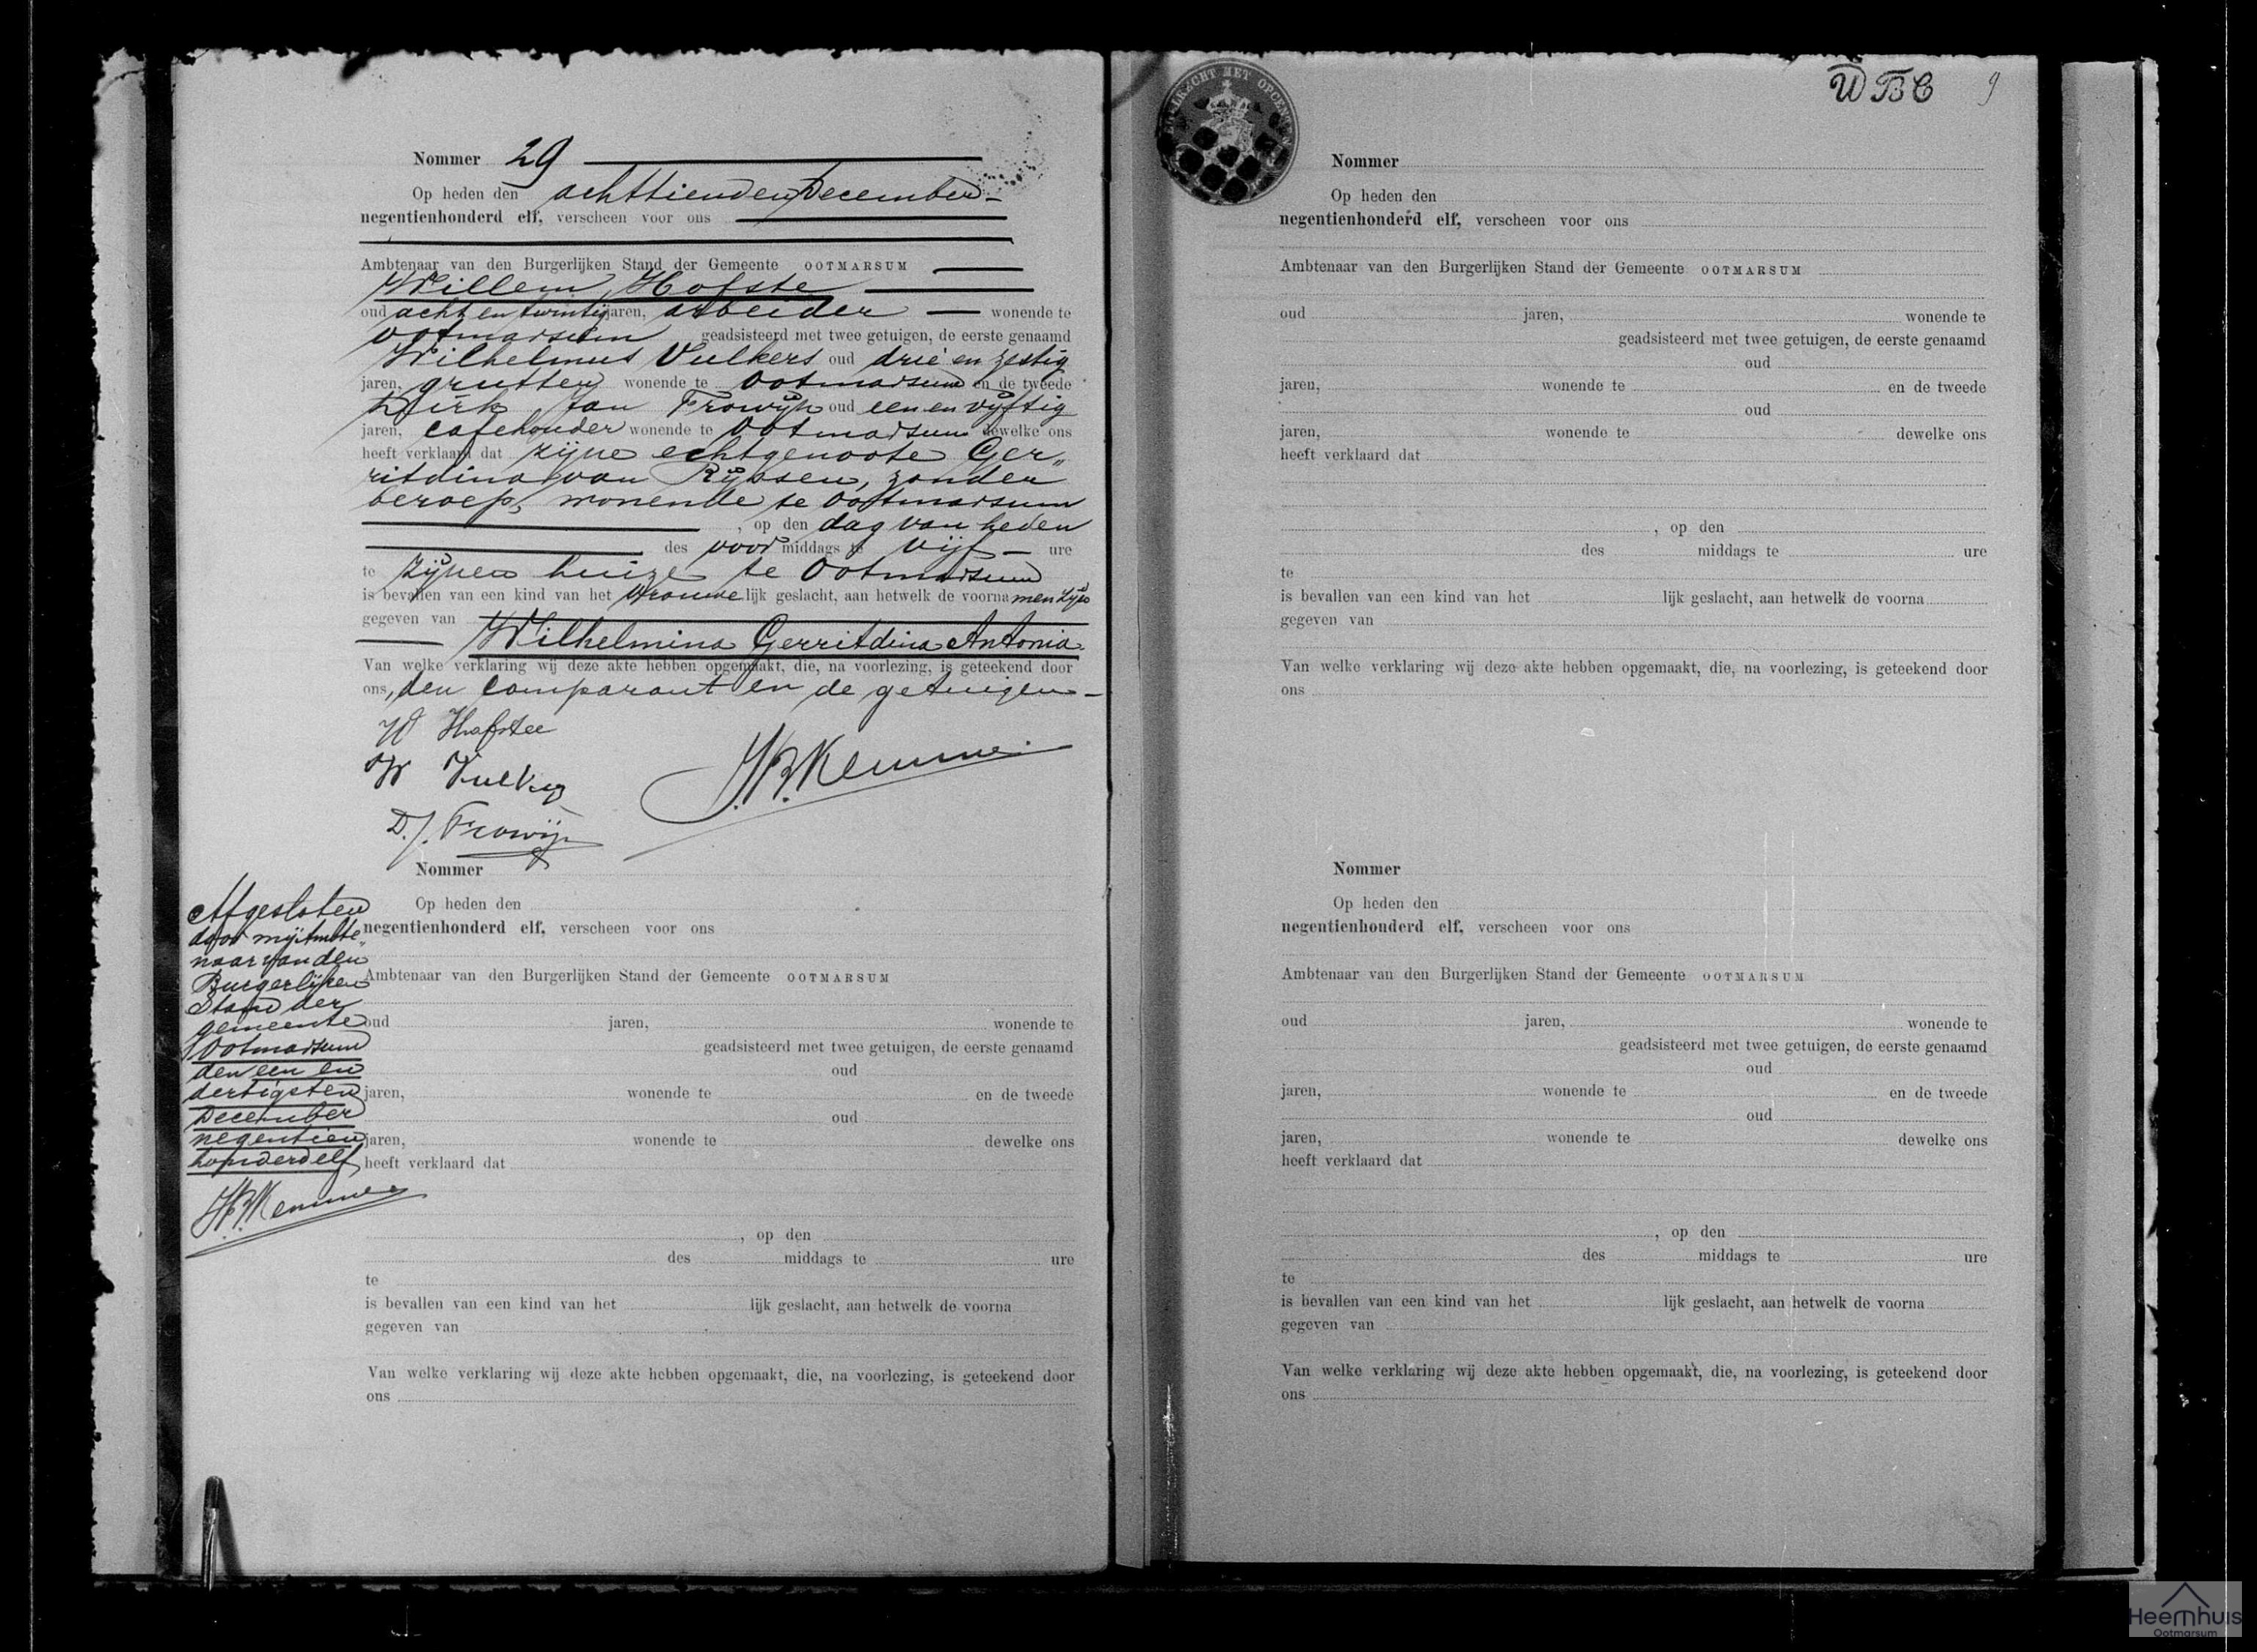 Nommer 29
Op heden den achttienden December
negentienhonderd elf, verscheen voor ons
Ambtenaar van den Burgerlijken Stand der Gemeente OOTMARSUM
Willem Hofste
oud acht en twintig jaren, arbeider wonende te
Ootmarsum geadsisteerd met twee getuigen, de eerste genaamd
Wilhelmus Vulkers oud drie en zestig
jaren, grutter wonende te Ootmarsum en de tweede
Dirk Jan Frowijn oud een en vijftig
jaren, cafehouder wonende te Ootmarsum dewelke ons
heeft verklaard dat zijne echtgenoote Ger„
ritdina van Rijssen, zonder
beroep, wonende te Ootmarsum
, op den dag van heden
des voormiddags te vijf ure
te zijnen huize te Ootmarsum
is bevallen van een kind van het vrouwelijk geslacht, aan hetwelk de voornamen zijn
gegeven van
Wilhelmina Gerritdina Antonia
Van welke verklaring wij deze akte hebben opgemaakt, die, na voorlezing, is geteekend door
ons, den comparant en de getuigen
W Hofstee
W Vulkers
D.J. Frowijn
Nommer
Op heden den
negentienhonderd elf, verscheen voor ons
Ambtenaar van den Burgerlijken Stand der Gemeente OOTMARSUM
oud jaren, wonende te
geadsisteerd met twee getuigen, de eerste genaamd
oud
jaren, wonende te en de tweede
oud
jaren, wonende te dewelke ons
heeft verklaard dat
, op den
des middags te ure
te
is bevallen van een kind van het lijk geslacht, aan hetwelk de voorna
gegeven van
Van welke verklaring wij deze akte hebben opgemaakt, die, na voorlezing, is geteekend door
ons
Afgesloten
door mij Ambte„
naar van den
Burgerlijken
Stand der
gemeente
Ootmarsum
den een en
dertigsten
December
negentien
honderd elf
WBC 9
Nommer
Op heden den
negentienhonderd elf, verscheen voor ons
Ambtenaar van den Burgerlijken Stand der Gemeente OOTMARSUM
oud jaren, wonende te
geadsisteerd met twee getuigen, de eerste genaamd
oud
jaren, wonende te en de tweede
oud
jaren, wonende te dewelke ons
heeft verklaard dat
, op den
des middags te ure
te
is bevallen van een kind van het lijk geslacht, aan hetwelk de voorna
gegeven van
Van welke verklaring wij deze akte hebben opgemaakt, die, na voorlezing, is geteekend door
ons
Nommer
Op heden den
negentienhonderd elf, verscheen voor ons
Ambtenaar van den Burgerlijken Stand der Gemeente OOTMARSUM
oud jaren, wonende te
geadsisteerd met twee getuigen, de eerste genaamd
oud
jaren, wonende te en de tweede
oud
jaren, wonende te dewelke ons
heeft verklaard dat
, op den
des middags te ure
te
is bevallen van een kind van het lijk geslacht, aan hetwelk de voorna
gegeven van
Van welke verklaring wij deze akte hebben opgemaakt, die, na voorlezing, is geteekend door
ons
Heemhuis
Ootmarsum